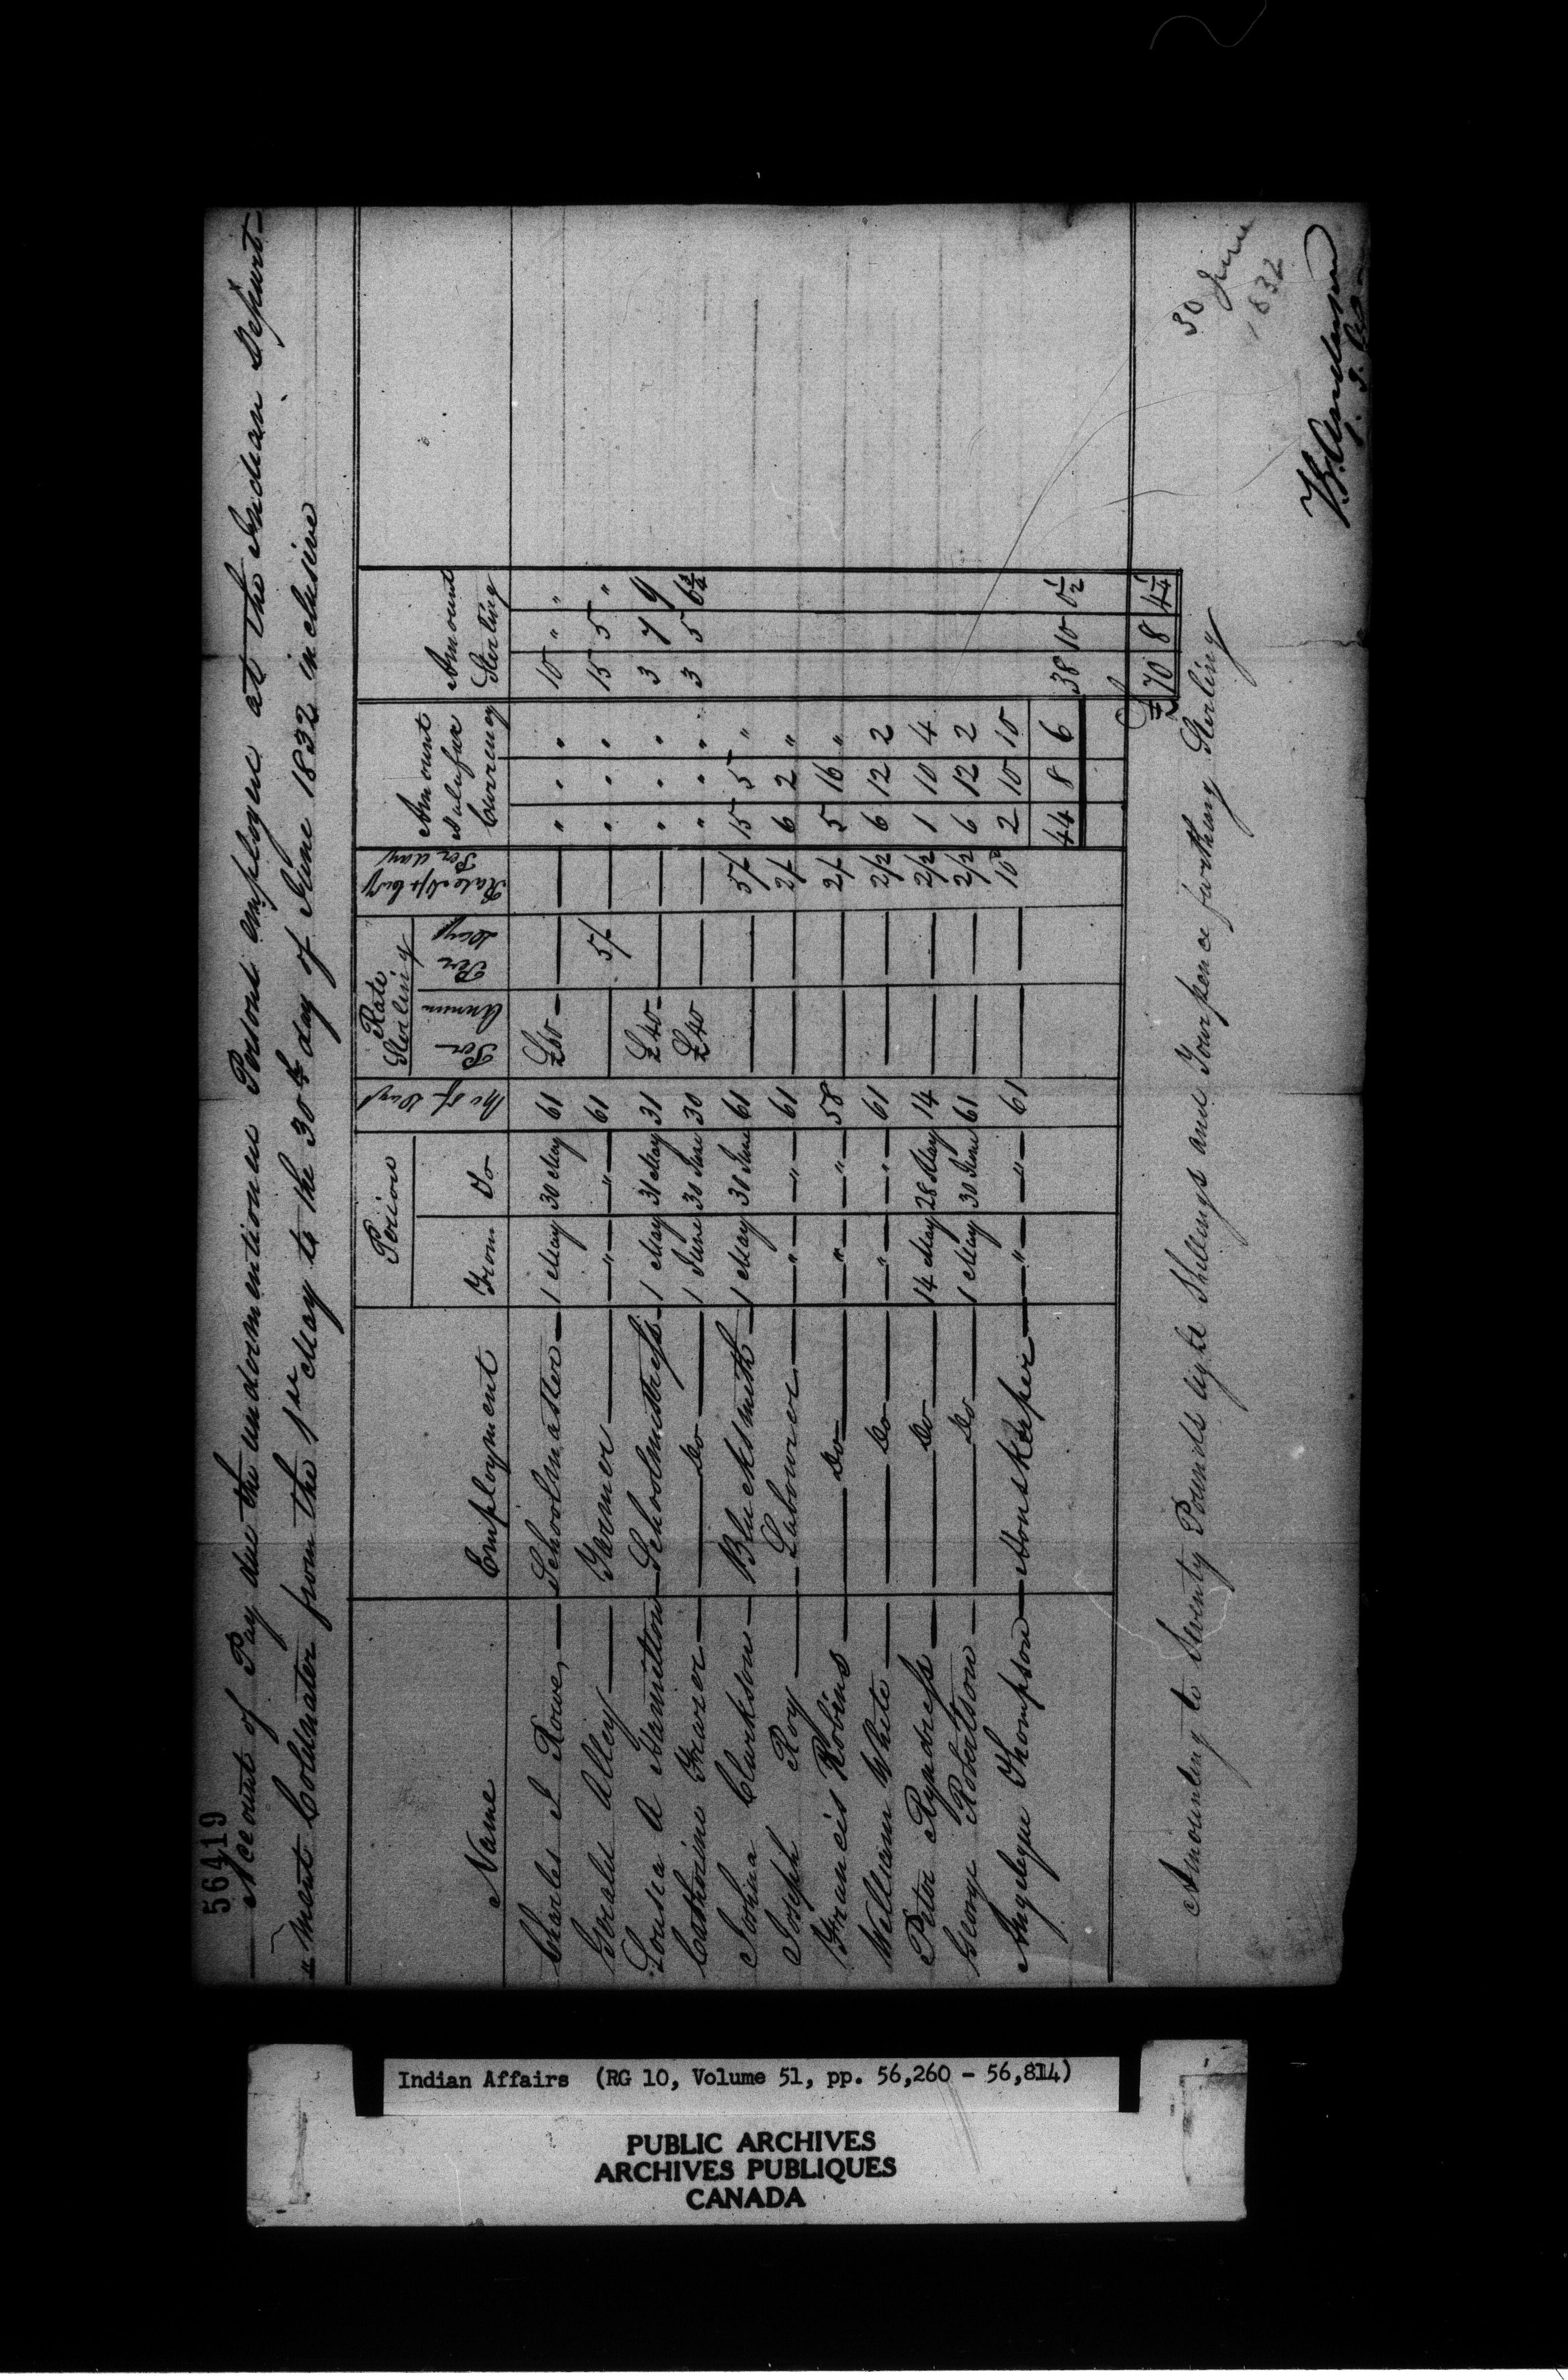 56419
Account of Pay due the undermentioned Persons employed at the Indian Depart-
"ment Coldwater from the 1st May to the 30th day of June 1832 inclusive
Name | Employment | Period From | To | No of Days | Rate Sterling Per Annum | Per Day | Rate Hx Cury Per day | Amount Halifax Currency | Amount Sterling
Charles I Rowe, — Schoolmaster — 1 May | 30 May | 61 | £60 — | — | — | " " " | 10 " "
Gerald Alley — Farmer — " — | — " — | 61 | — | 5/ | — | " " " | 15 5 "
Lousia A Hamilton — Schoolmistress — 1 May | 31 May | 31 | £40 — | — | — | " " " | 3 7 9
Catherine Frazer — Do — 1 June | 30 June | 30 | £40 | — | — | " " " | 3 5 6¾
Joshua Clarkson — Blacksmith — 1 May | 30 June | 61 | — | — | 5/ | 15 5 "
Joseph Roy — Labourer — " — | — " — | 61 | — | — | 2/ | 6 2 "
Francis Robins — Do — " — | — " — | 58 | — | — | 2/ | 5 16 "
William White — Do — " — | — " — | 61 | — | — | 2/2 | 6 12 2
Peter Ryndress — Do — 14 May | 28 May | 14 | — | — | 2/2 | 1 10 4
George Robertson — Do — 1 May | 30 June | 61 | — | — | 2/2 | 6 12 2
Angelique Thompson — Housekeeper — " — | — " — | 61 | — | — | 10d | 2 10 10
44 8 6 | 38 10 0½
£70 8 4¼
Amounting to Seventy Pounds eight Shillings and Fourpence farthing Sterling
30 June
1832
T.G. Anderson
S. I. A.
Indian Affairs (RG 10, Volume 51, pp. 56,260 - 56,814)
PUBLIC ARCHIVES
ARCHIVES PUBLIQUES
CANADA